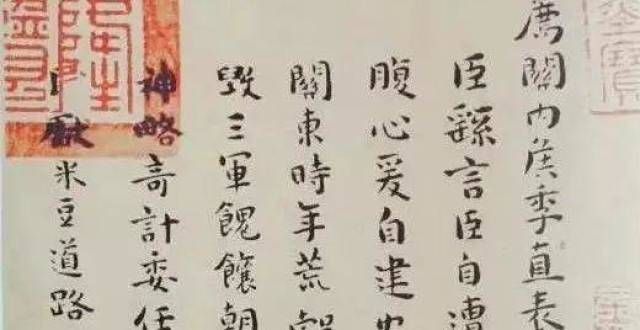 薦關內侯季直表
臣繇言臣自遭
腹心爰自建
關東時年荒穀
毀三軍餽饟朝
神略奇計委任
獻米豆道路